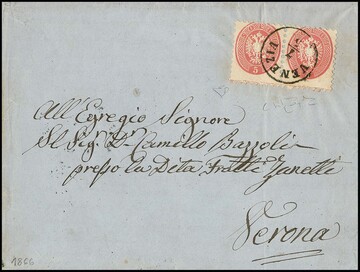 VENEZIA
5
5
All'Egregio Signore
Il Sig. D. Camillo Bazzoli
presso la Dita Fratti Zanetti
Verona
1866